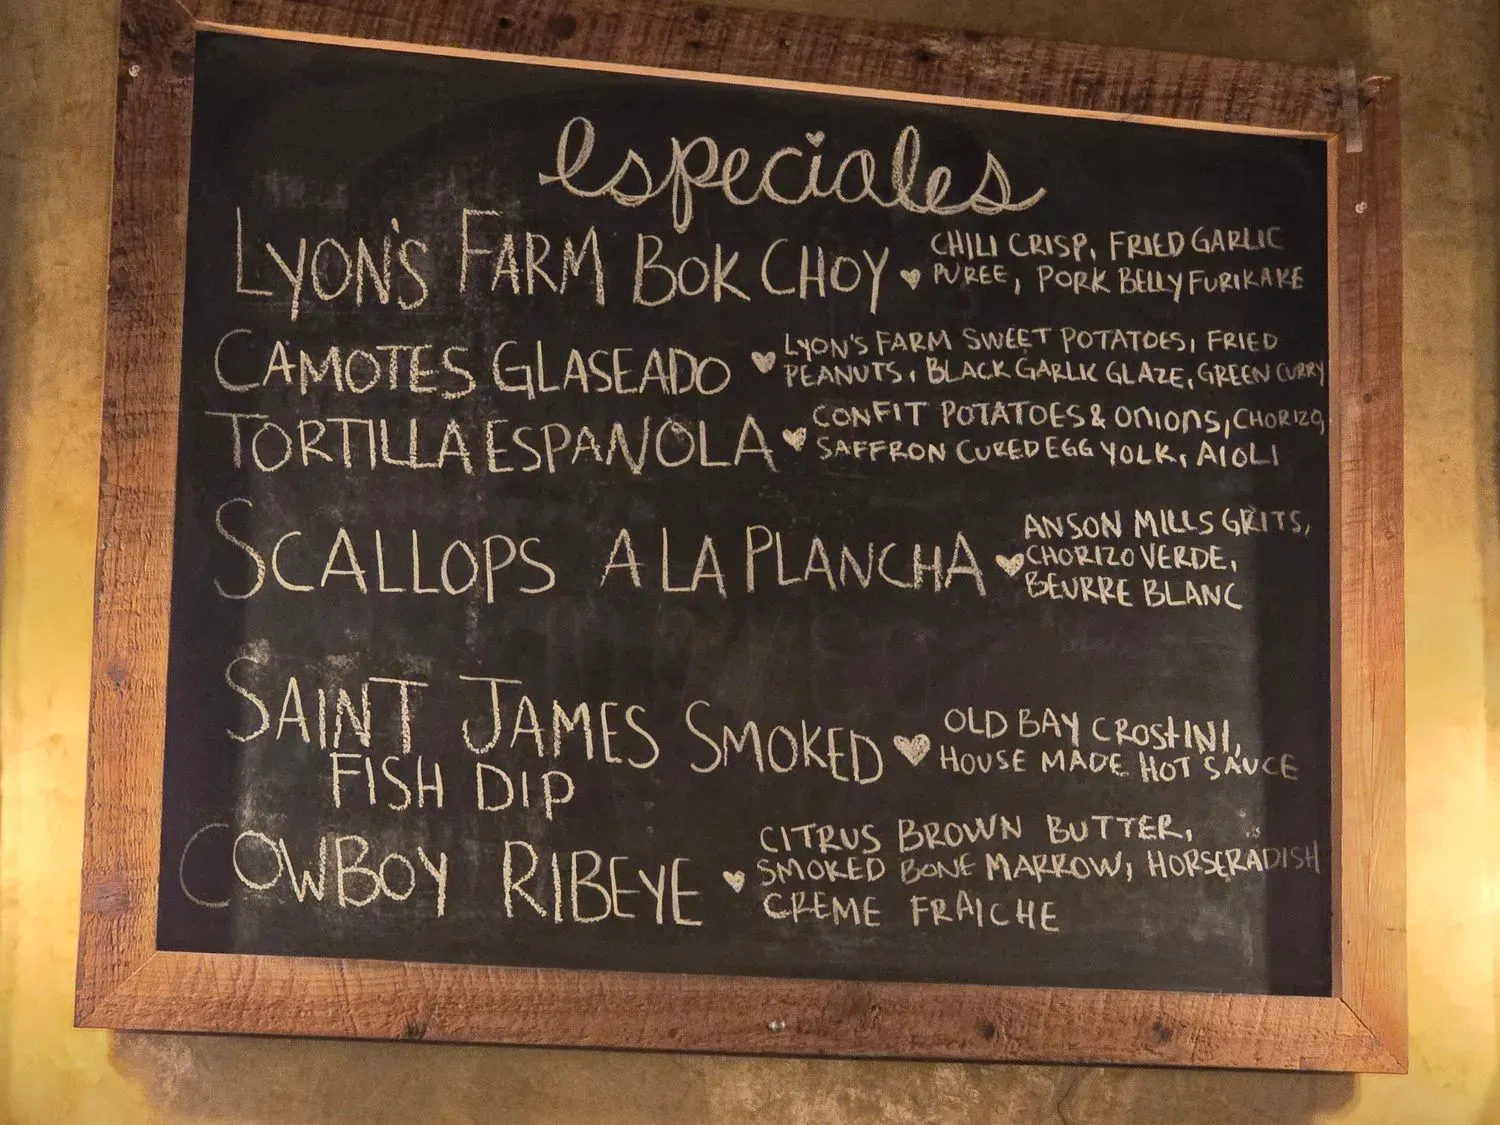 especiales
LYON'S FARM BOK CHOY ♥ CHILI CRISP, FRIED GARLIC
PUREE, PORK BELLY FURIKAKE
CAMOTES GLASEADO ♥ LYON'S FARM SWEET POTATOES, FRIED
PEANUTS, BLACK GARLIC GLAZE, GREEN CURRY
TORTILLA ESPANOLA ♥ CONFIT POTATOES & ONIONS, CHORIZO,
SAFFRON CURED EGG YOLK, AIOLI
SCALLOPS A LA PLANCHA ♥ ANSON MILLS GRITS,
CHORIZO VERDE,
BEURRE BLANC
SAINT JAMES SMOKED ♥ OLD BAY CROSTINI,
HOUSE MADE HOT SAUCE
FISH DIP
COWBOY RIBEYE ♥ CITRUS BROWN BUTTER,
SMOKED BONE MARROW, HORSERADISH
CREME FRAICHE